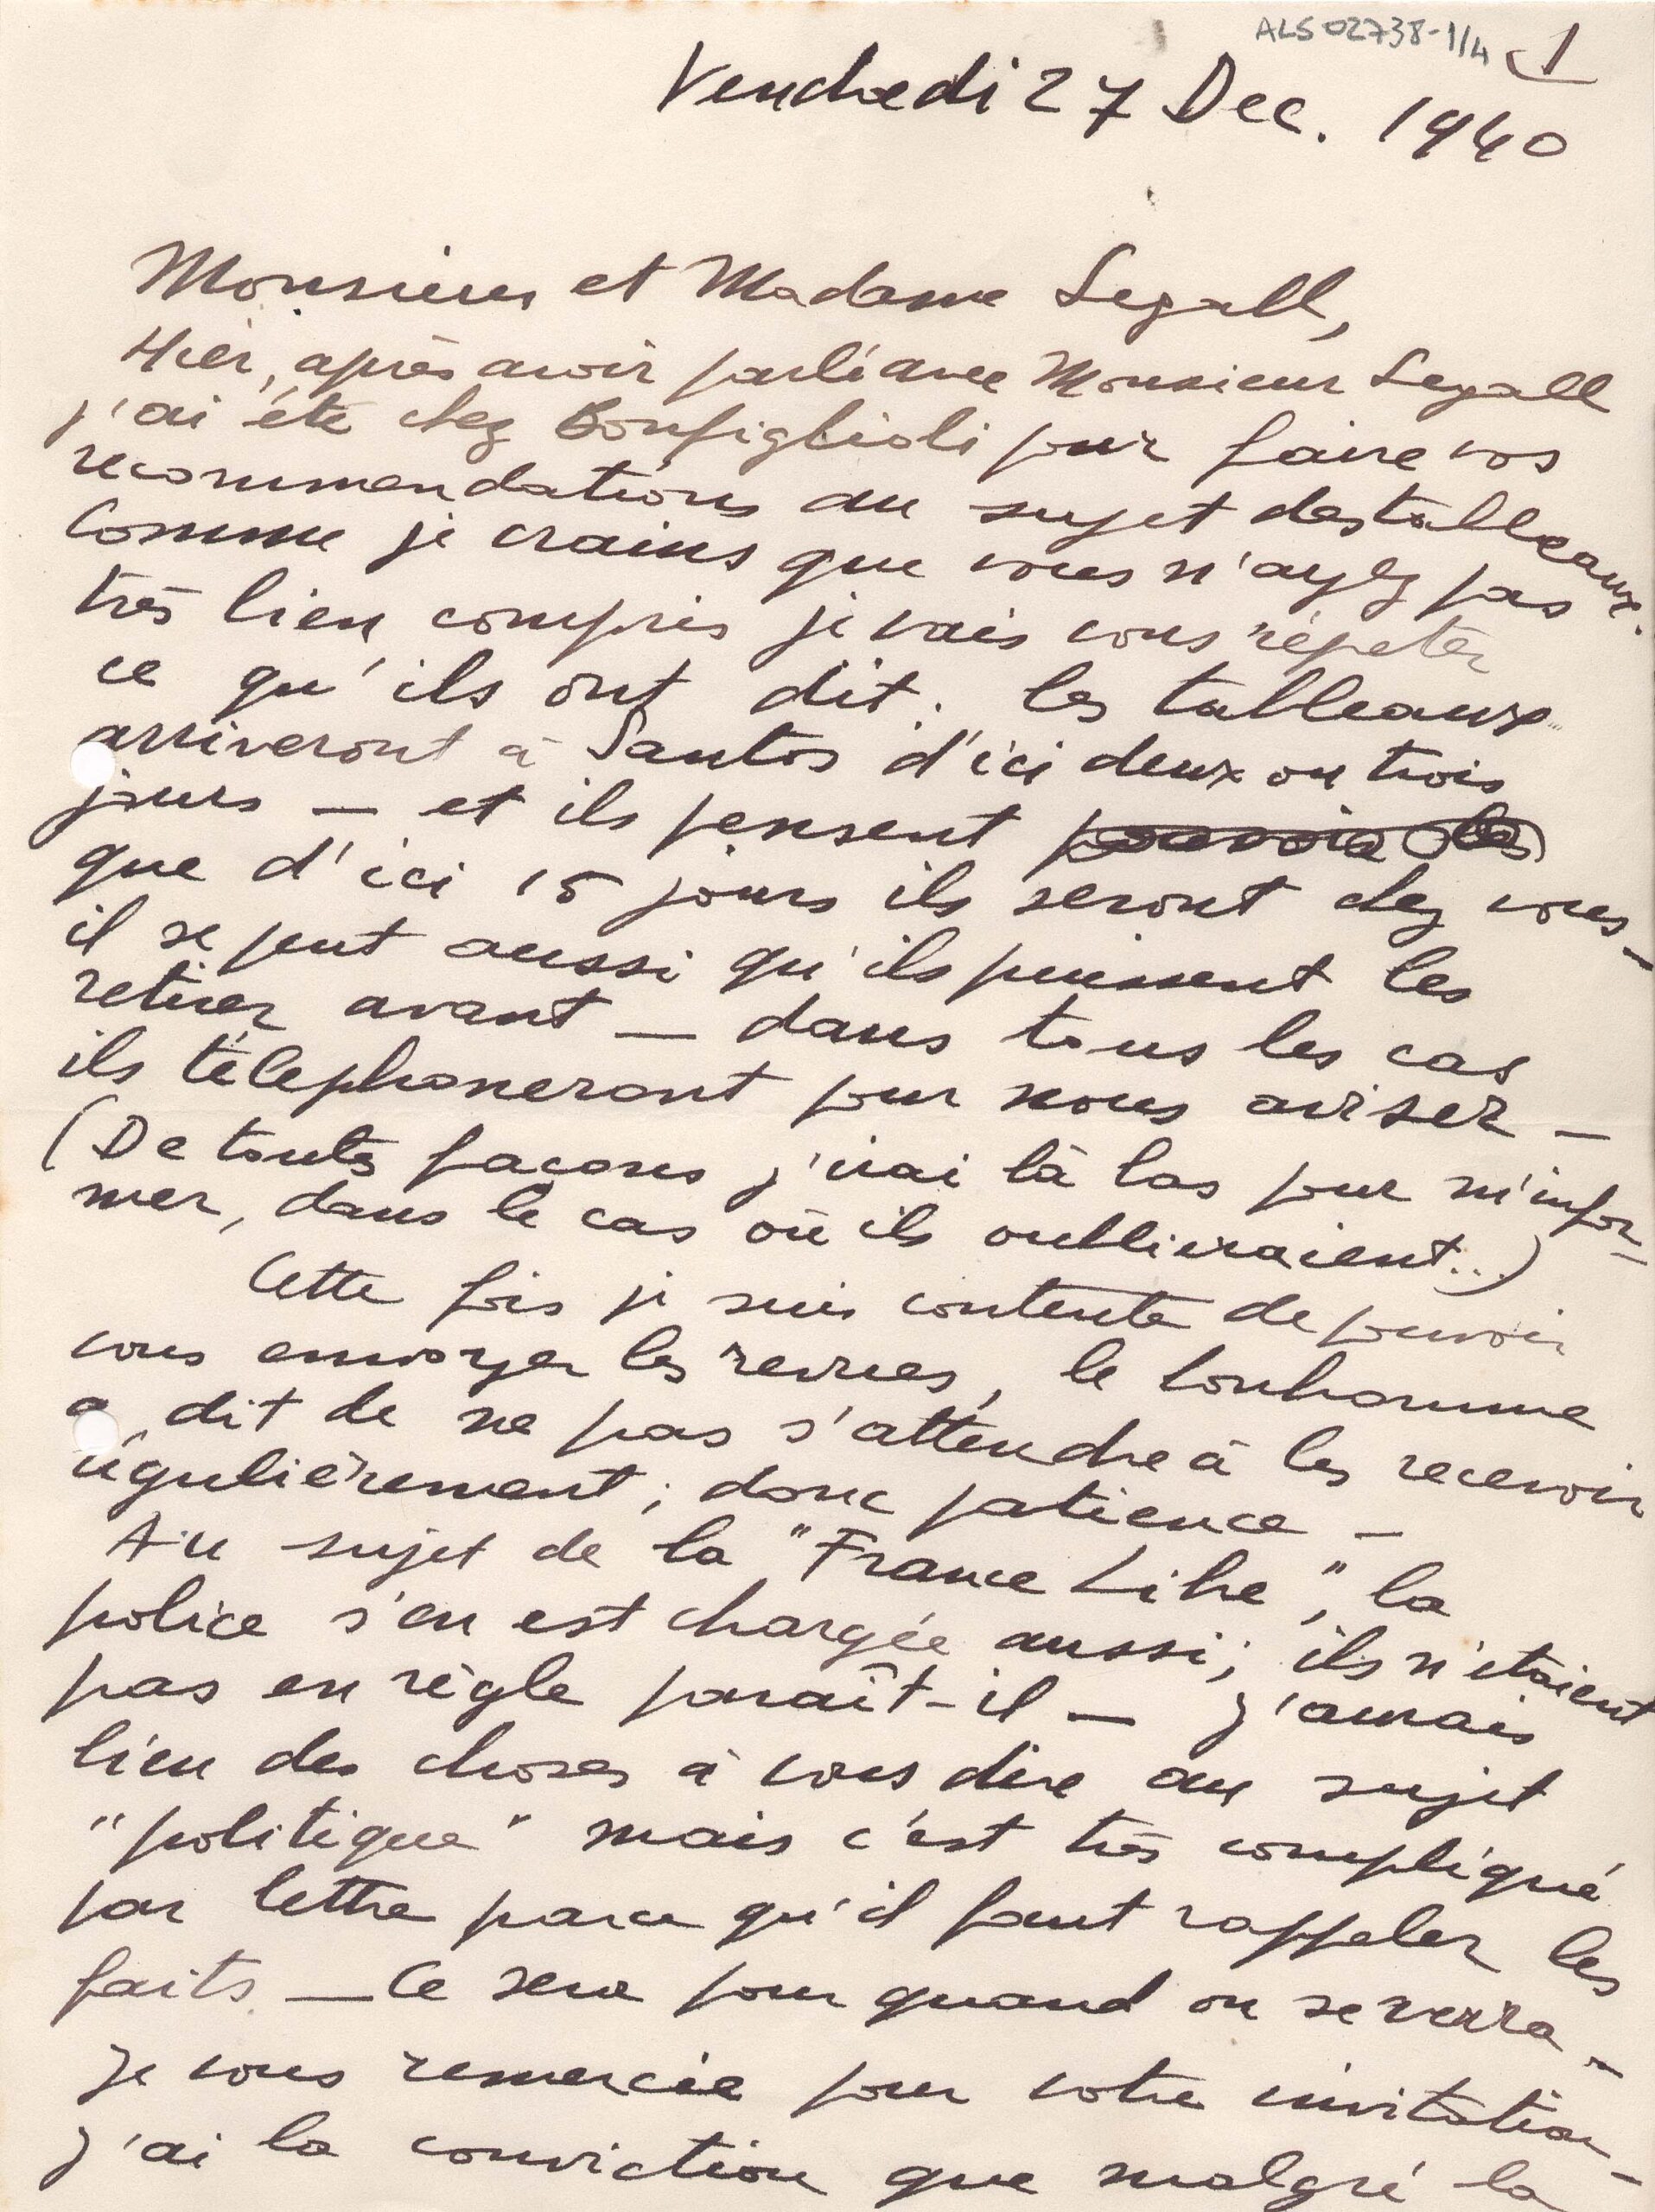 ALS 02738-1/4 1
Vendredi 27 Dec. 1940
Monsieur et Madame Segall,
Hier, après avoir parlé avec Monsieur Segall
j'ai été chez Bonfiglioli pour faire vos
recommendations au sujet des tableaux.
Comme je crains que vous n'ayez pas
très bien compris je vais vous répéter
ce qu'ils ont dit. les tableaux
arriveront à Santos d'ici deux ou trois
jours — et ils pensent pouvoir les
que d'ici 15 jours ils seront chez vous —
il se peut aussi qu'ils puissent les
retirer avant — dans tous les cas
ils télephoneront pour nous aviser —
(De toutes façons j'irai là bas pour m'infor-
mer, dans le cas où ils oublieraient...)
Cette fois je suis contente de pouvoir
vous envoyer les revues, le bonhomme
a dit de ne pas s'attendre à les recevoir
régulièrement; donc patience —
Au sujet de la "France Libre", la
police s'en est chargée aussi; ils n'étaient
pas en règle paraît-il — J'aurais
bien des choses à vous dire au sujet
"politique" mais c'est très compliqué
par lettre parce qu'il faut rappeler les
faits — Ce sera pour quand on se verra —
Je vous remercie pour votre invitation —
J'ai la conviction que malgré la